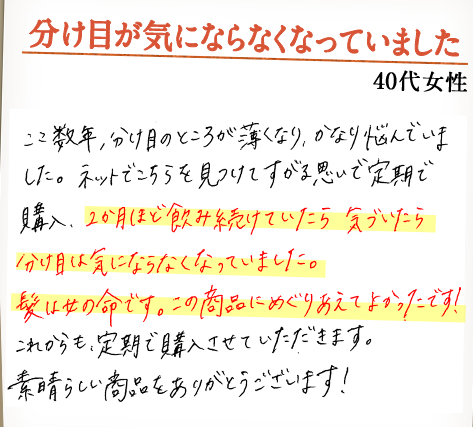 分け目が気にならなくなっていました
40代女性
ここ数年,分け目のところが薄くなり,かなり悩んでいま
した。ネットでこちらを見つけてすがる思いで定期で
購入、2か月ほど飲み続けていたら 気づいたら
分け目は気にならなくなっていました。
髪は女の命です。この商品にめぐりあえてよかったです!
これからも、定期で購入させていただきます。
素晴らしい商品をありがとうございます!